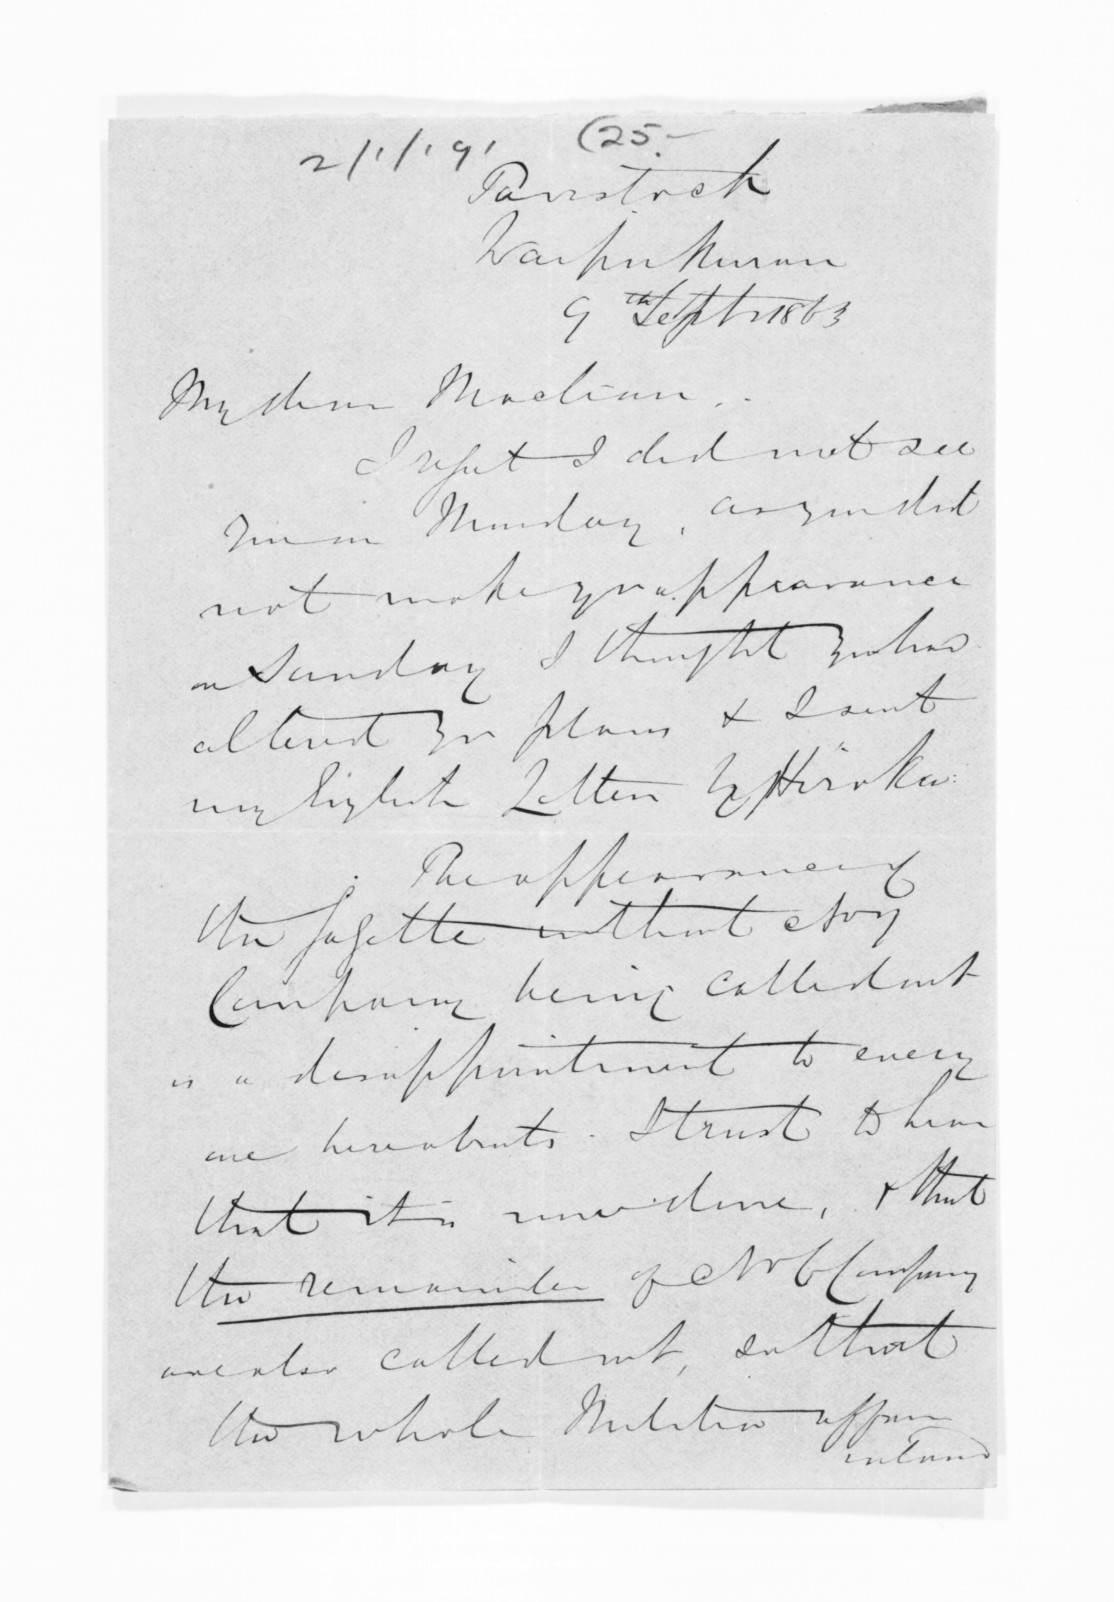 2/1/191 (25-
Tavistock
Waipukurau
9th Septbr 1863
My dear Maclean,
I regret I did not see
you on Monday, as you did
not make yr appearance
on Sunday I thought you had
altered yr plans & I sent
my English Letters by Hiroka:
The appearance of
the Gazette without
Company being called out
is a disappointment to every
one hereabouts. I trust to hear
that it is now done, & that
the remainder of No 6 Company
are also called out, so that
the whole Militia affair
inland